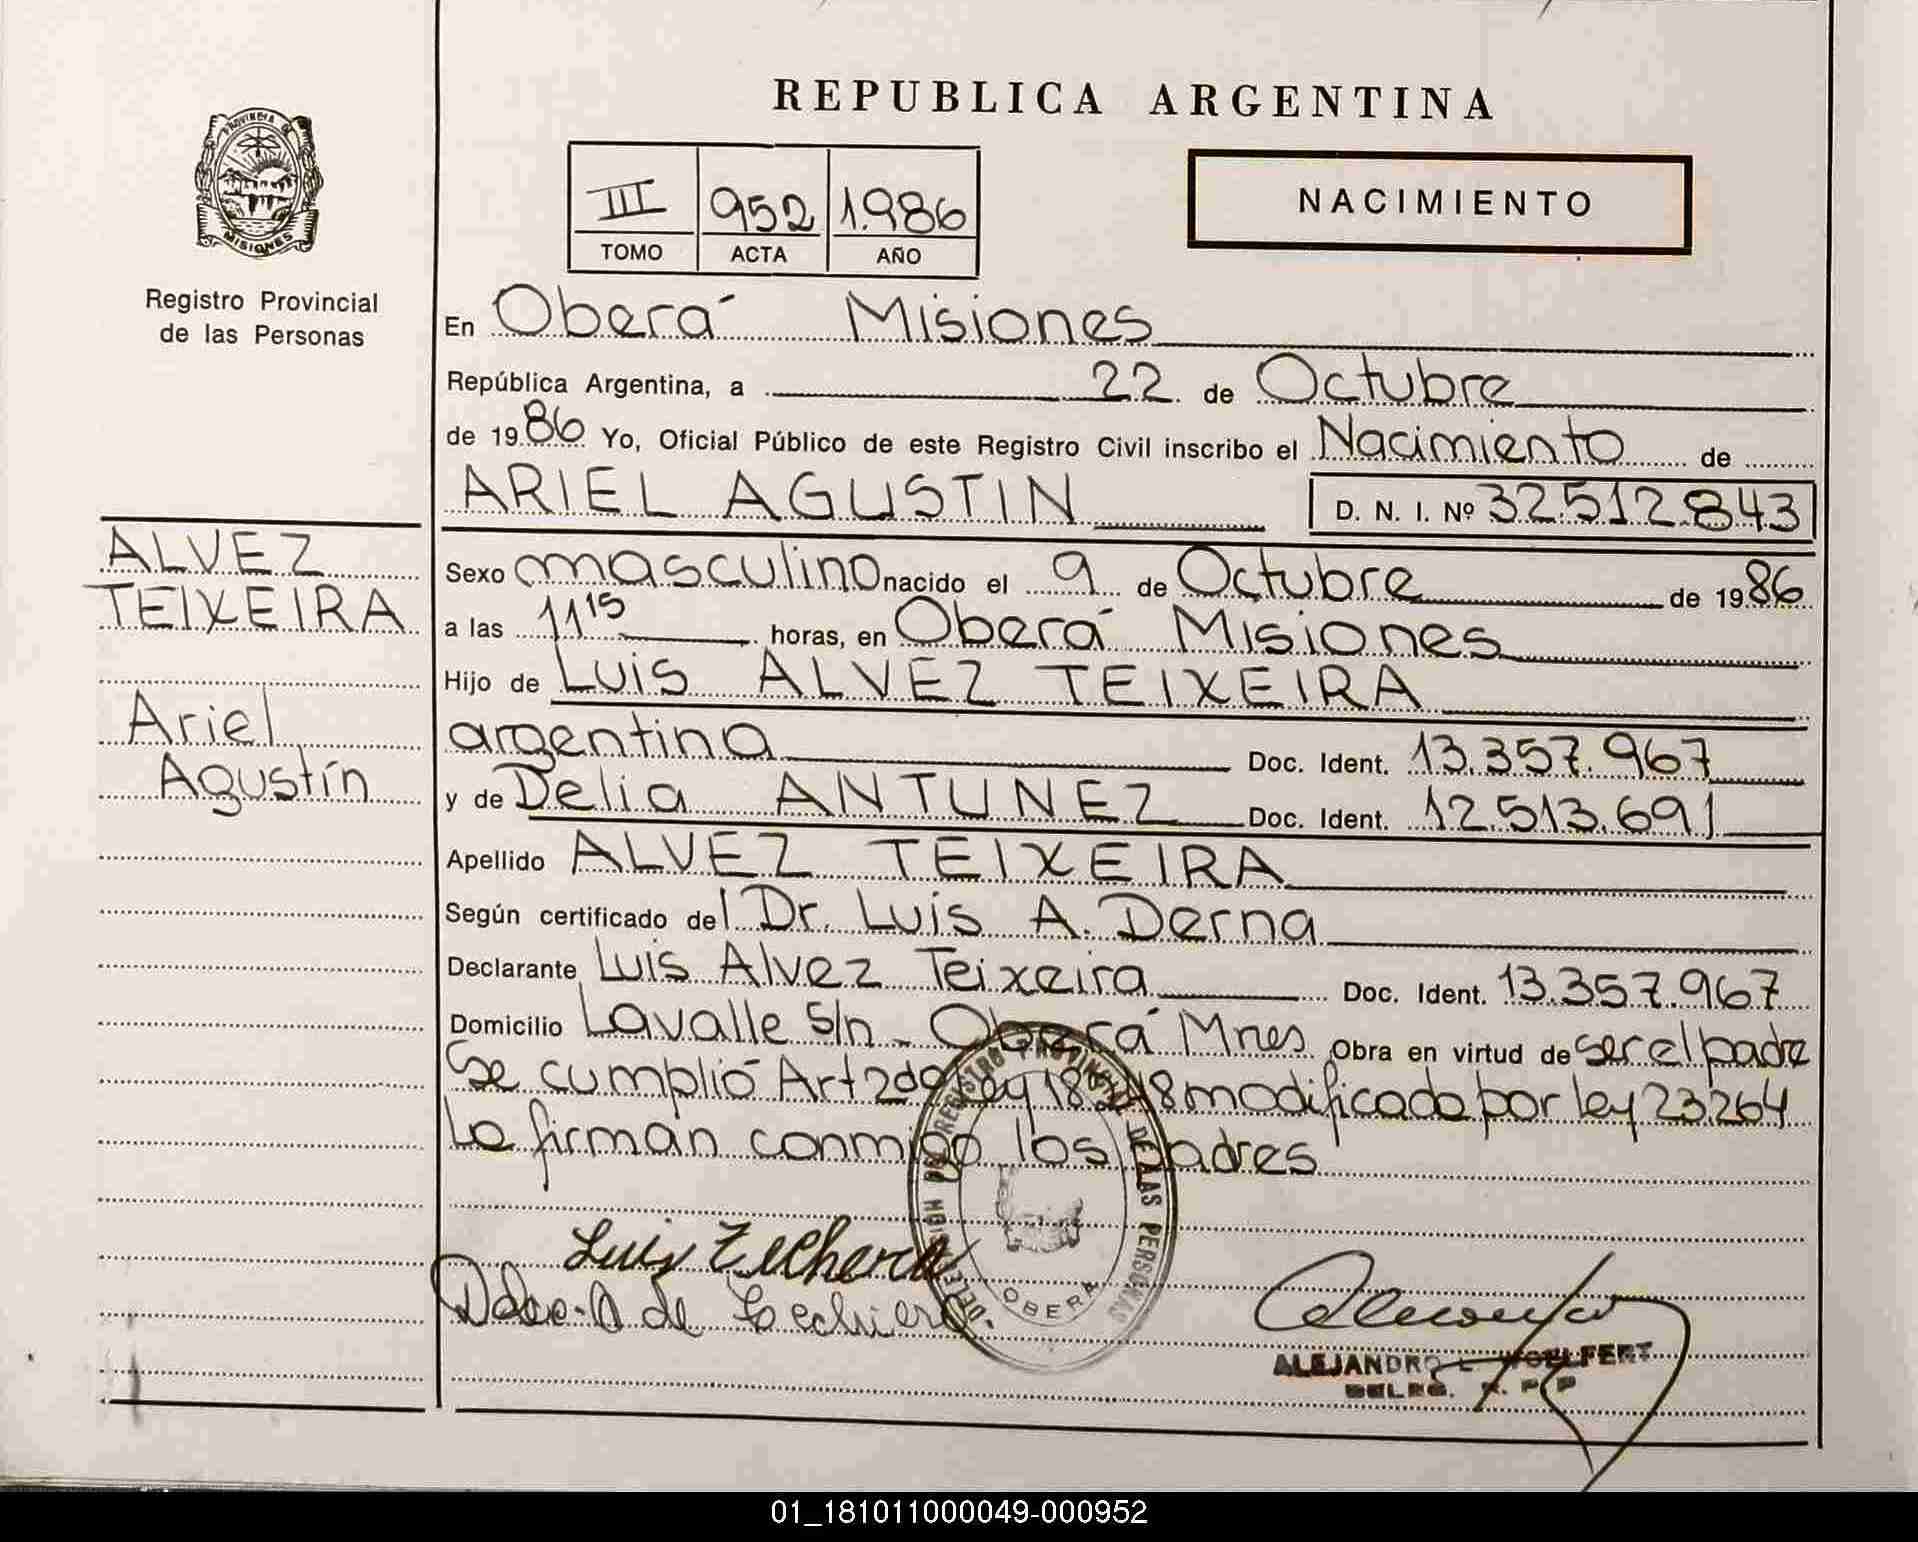 REPUBLICA ARGENTINA
PROVINCIA DE MISIONES
Registro Provincial
de las Personas
III 952 1.986
TOMO ACTA AÑO
NACIMIENTO
En Oberá Misiones
República Argentina, a 22 de Octubre
de 1986 Yo, Oficial Público de este Registro Civil inscribo el Nacimiento de
ARIEL AGUSTIN D. N. I. Nº 32.512.843
ALVEZ
TEIXEIRA
Ariel
Agustín
Sexo masculino nacido el 9 de Octubre de 1986
a las 11 15 horas, en Oberá Misiones
Hijo de Luis ALVEZ TEIXEIRA
argentina Doc. Ident. 13.357.967
y de Delia ANTUNEZ Doc. Ident. 12.513.691
Apellido ALVEZ TEIXEIRA
Según certificado del Dr. Luis A. Derna
Declarante Luis Alvez Teixeira Doc. Ident. 13.357.967
Domicilio Lavalle S/n - Oberá Mnes Obra en virtud de ser el padre
Se cumplió Art 2do ley 18248 modificada por ley 23.264
La firman conmigo los padres
REGISTRO PROVINCIAL DE LAS PERSONAS
OBERA
Luis
de
ALEJANDRO WOELFERT
DELEG. R. P. P
01_181011000049-000952